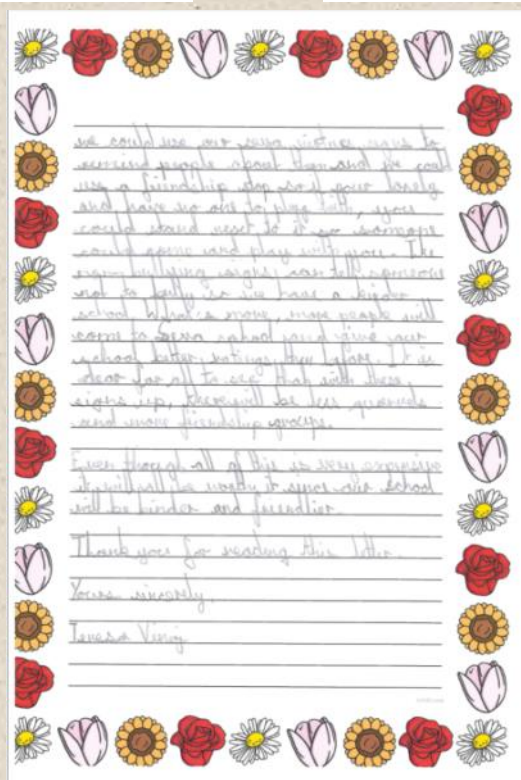 we could use our seven virtues signs to
remind people about them and we could
use a friendship stop so if your lonely
and have no one to play with, you
could stand next to it so someone
could come and play with you. The
bullying signs can tell someone
not to bully so we have a kinder
school. What's more, more people will
come to school and give our
school better ratings then before. It is
clear for all to see that with these
signs up, there will be less quarrels
and more friendship groups.
Even though all of this is very expensive
it will all be worth it since our school
will be kinder and friendlier.
Thank you for reading this letter.
Yours sincerely,
Teresa